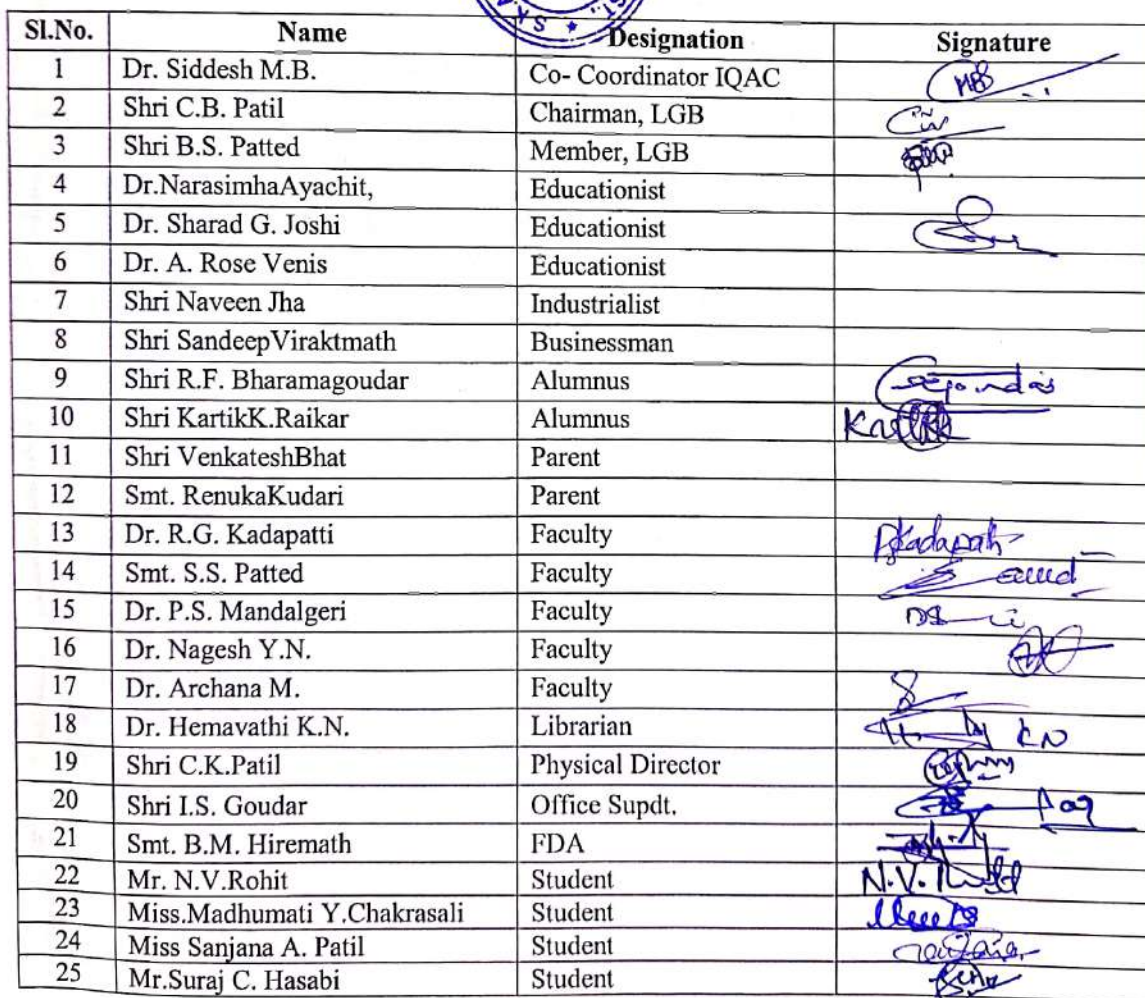 Sl.No. Name Designation Signature
1 Dr. Siddesh M.B. Co- Coordinator IQAC
2 Shri C.B. Patil Chairman, LGB
3 Shri B.S. Patted Member, LGB
4 Dr.NarasimhaAyachit, Educationist
5 Dr. Sharad G. Joshi Educationist
6 Dr. A. Rose Venis Educationist
7 Shri Naveen Jha Industrialist
8 Shri SandeepViraktmath Businessman
9 Shri R.F. Bharamagoudar Alumnus
10 Shri KartikK.Raikar Alumnus
11 Shri VenkateshBhat Parent
12 Smt. RenukaKudari Parent
13 Dr. R.G. Kadapatti Faculty
14 Smt. S.S. Patted Faculty
15 Dr. P.S. Mandalgeri Faculty
16 Dr. Nagesh Y.N. Faculty
17 Dr. Archana M. Faculty
18 Dr. Hemavathi K.N. Librarian KN
19 Shri C.K.Patil Physical Director
20 Shri I.S. Goudar Office Supdt.
21 Smt. B.M. Hiremath FDA
22 Mr. N.V.Rohit Student N.V.
23 Miss.Madhumati Y.Chakrasali Student
24 Miss Sanjana A. Patil Student
25 Mr.Suraj C. Hasabi Student